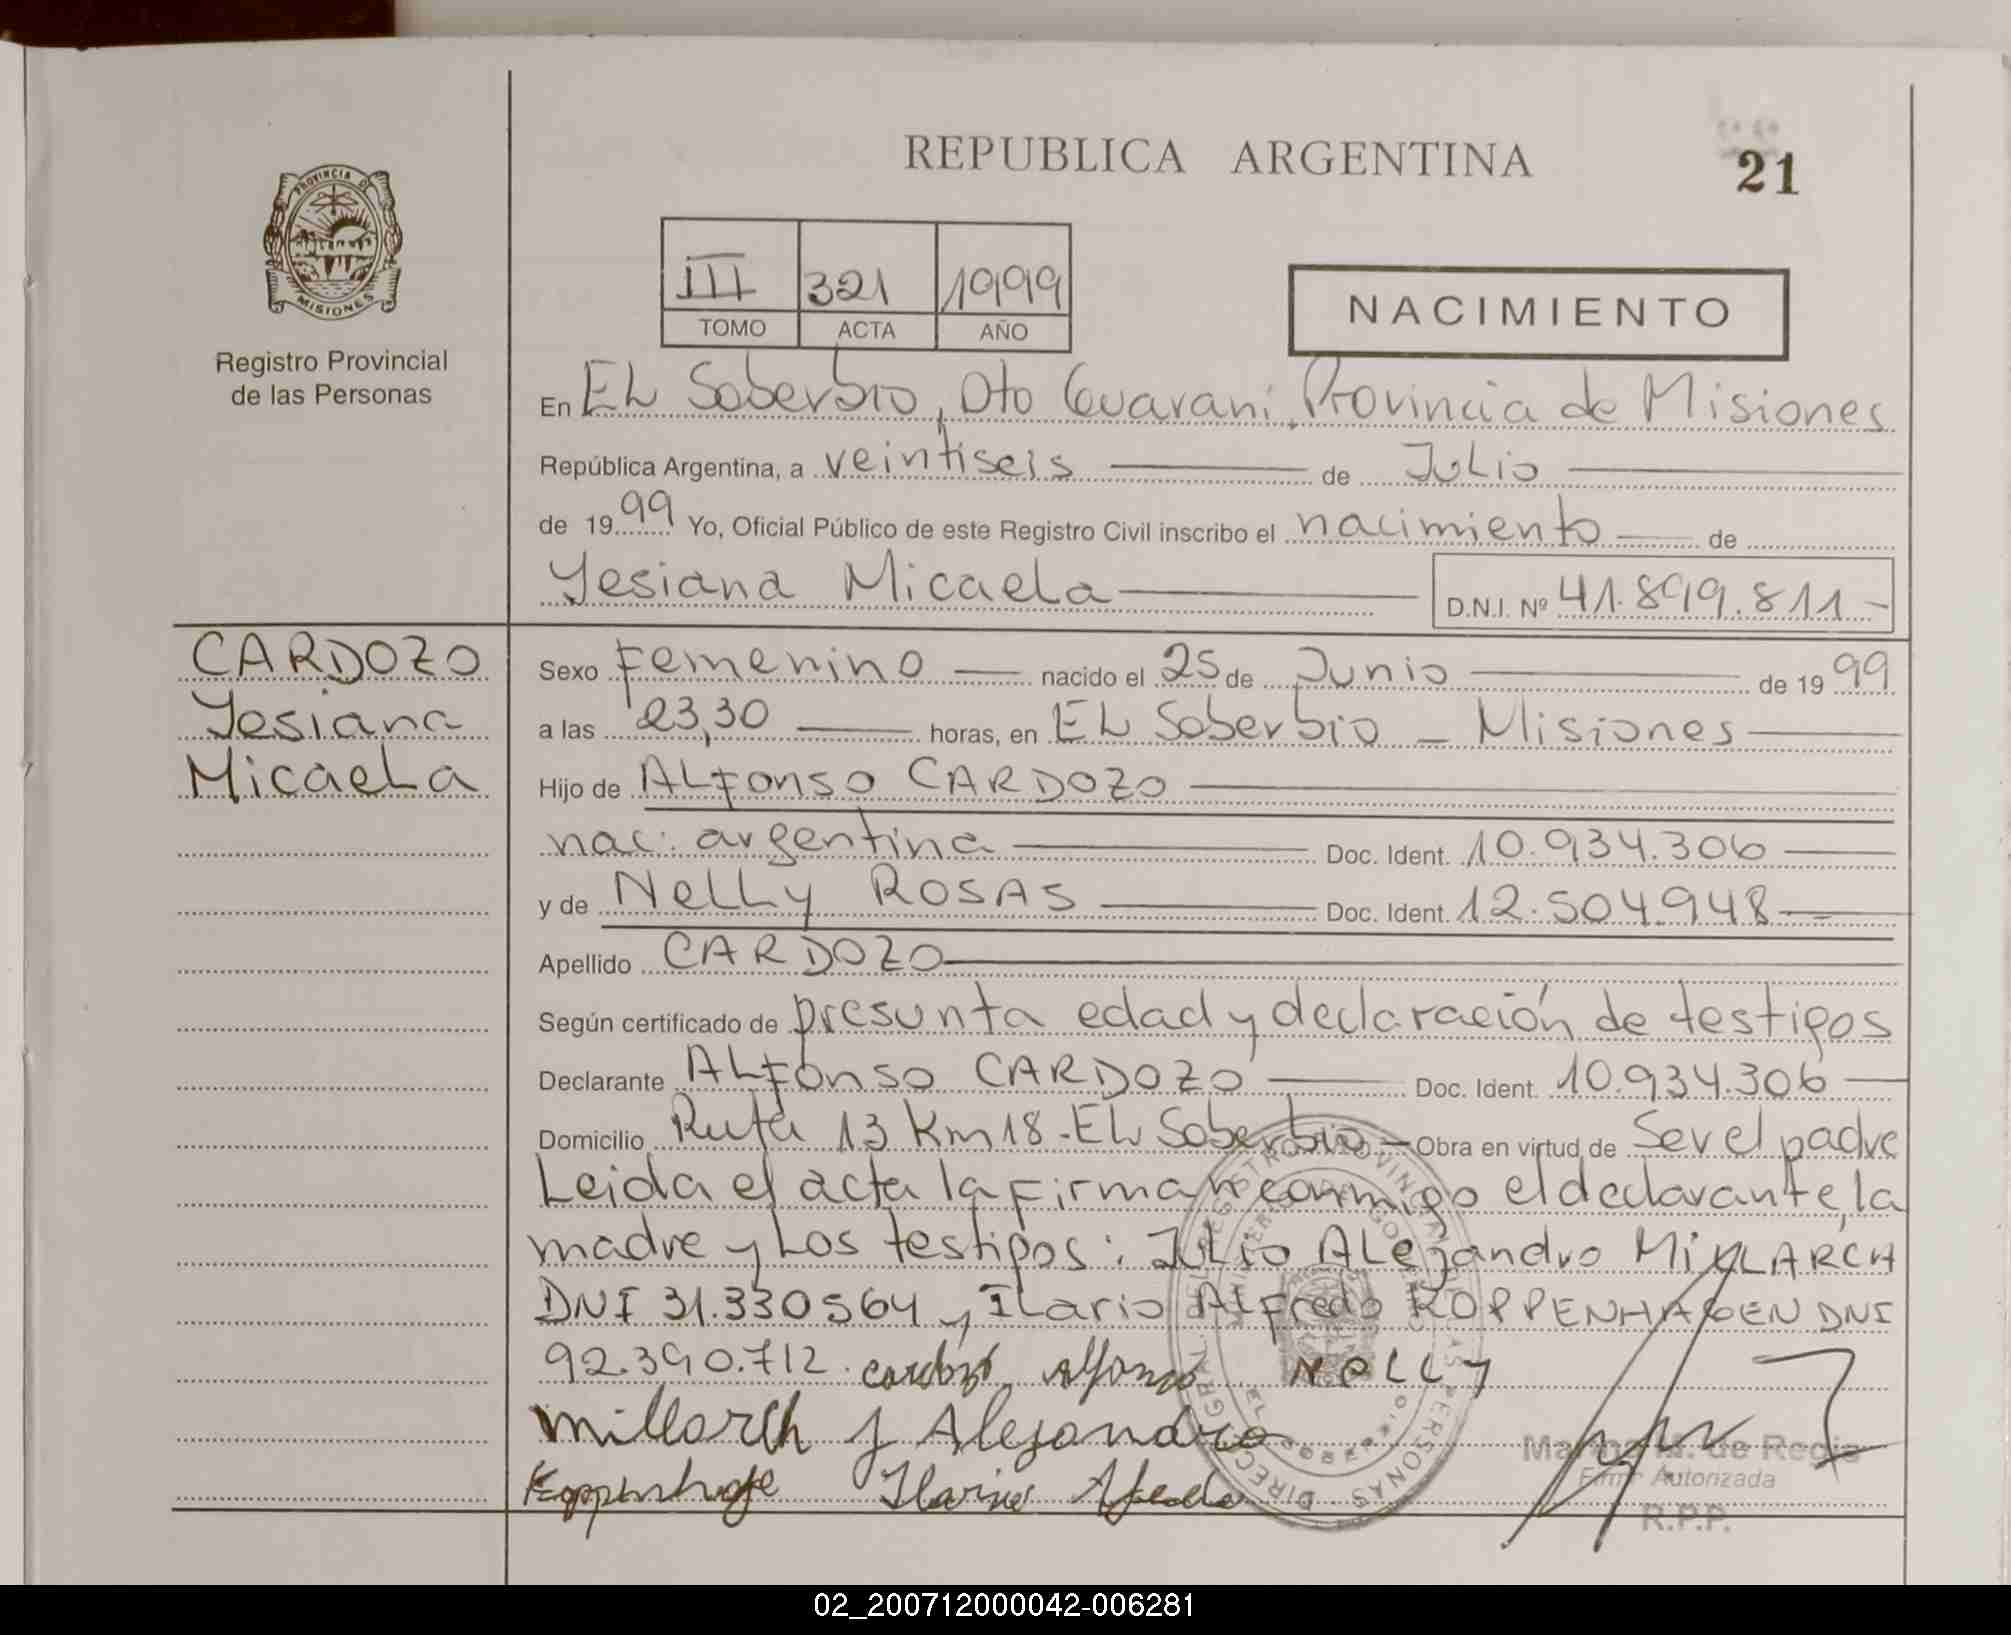 REPUBLICA ARGENTINA
21
PROVINCIA DE
MISIONES
Registro Provincial
de las Personas
III 321 1999
TOMO ACTA AÑO
NACIMIENTO
En EL Soberbio, Dto Guarani, Provincia de Misiones
República Argentina, a veintiseis de Julio
de 1999 Yo, Oficial Público de este Registro Civil inscribo el nacimiento de
Yesiana Micaela D.N.I. Nº 41.899.811.-
CARDOZO
Yesiana
Micaela
Sexo Femenino nacido el 25 de Junio de 1999
a las 23,30 horas, en EL Soberbio - Misiones
Hijo de ALfonso CARDOZO
nac: argentina Doc. Ident. 10.934.306
y de NeLLy ROSAS Doc. Ident. 12.504.948
Apellido CARDOZO
Según certificado de presunta edad y declaración de testigos
Declarante ALfonso CARDOZO Doc. Ident. 10.934.306
Domicilio Ruta 13 Km 18 - EL Soberbio - Obra en virtud de Ser el padre
Leida el acta la firman conmigo el declarante, la
madre y Los testigos: Julio ALejandro MiLLARCH
DNI 31.330564 y ILario ALfredo KOPPENHAGEN DNI
92.390.712. Cardozo Alfonso NeLLy
Millarch J Alejandro
Ilario
Firma Autorizada
R.P.P.
02_200712000042-006281